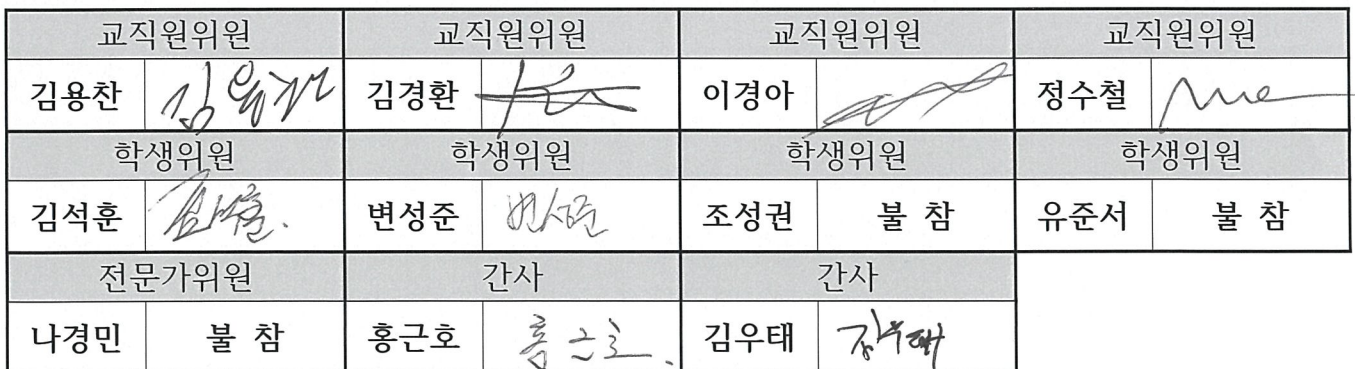 교직원위원 교직원위원 교직원위원 교직원위원
김용찬 김용찬 김경환 이경아 정수철
학생위원 학생위원 학생위원 학생위원
김석훈 김석훈 변성준 변성준 조성권 불 참 유준서 불 참
전문가위원 간사 간사
나경민 불 참 홍근호 홍근호 김우태 김우태